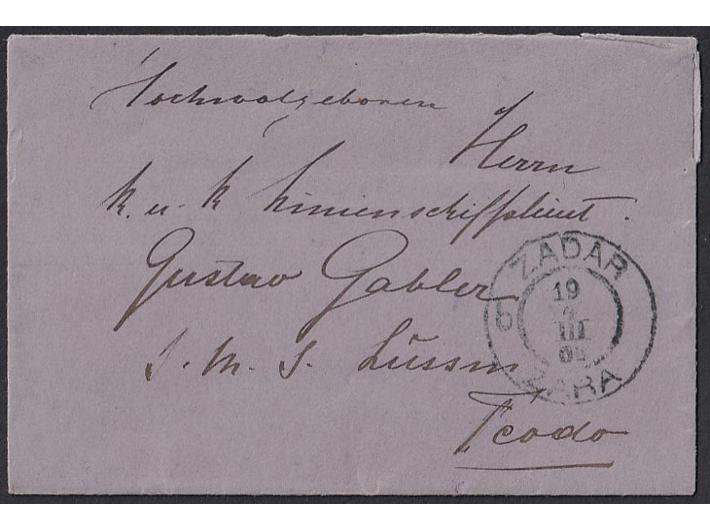 Hochwolgeboren
Herrn
k. u. k. Linienschiffslieut.
Gustav Gabler
S. M. S. Lussin
Teodo
ZADAR
19
III
ZARA